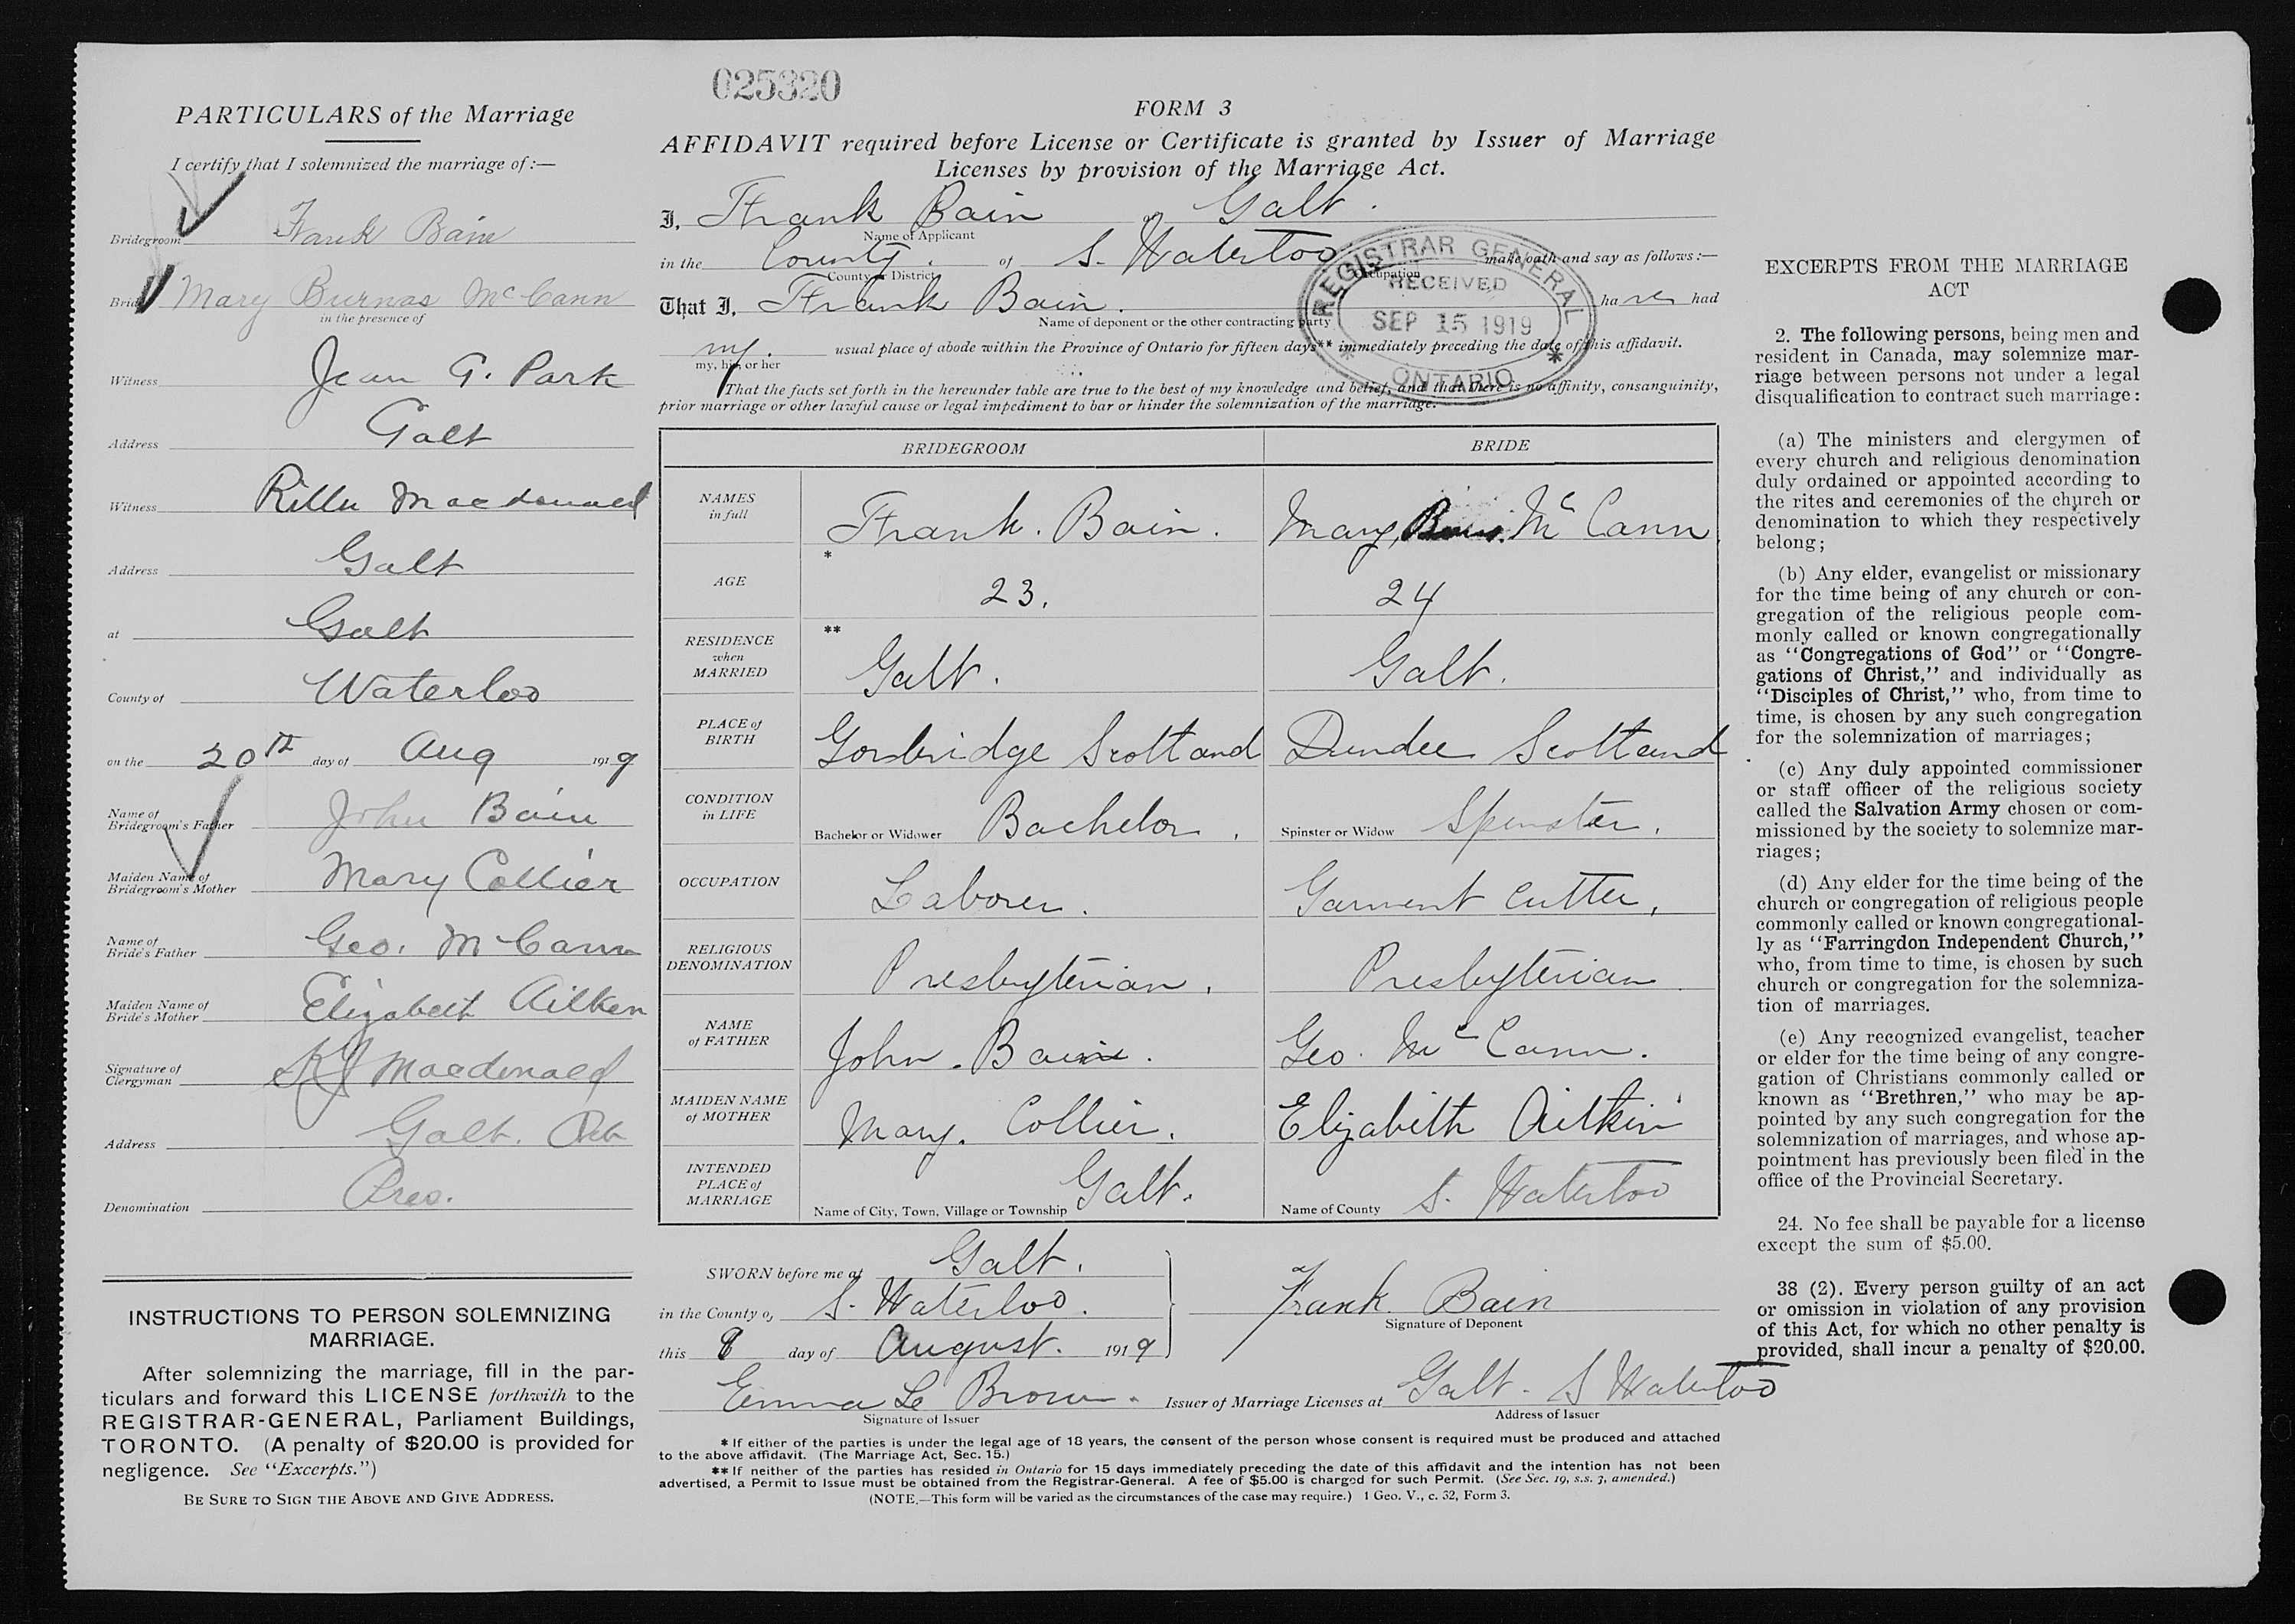 025320
PARTICULARS of the Marriage
I certify that I solemnized the marriage of:—
Bridegroom Frank Bain
Bride Mary Burnas McCann
in the presence of
Witness Jean G. Park
Address Galt
Witness Rilla Macdonald
Address Galt
at Galt
County of Waterloo
on the 20th day of Aug 1919
Name of
Bridegroom's Father John Bain
Maiden Name of
Bridegroom's Mother Mary Collier
Name of
Bride's Father Geo. McCann
Maiden Name of
Bride's Mother Elizabeth Aitken
Signature of
Clergyman Macdonald
Address Galt. Ont
Denomination Pres.
INSTRUCTIONS TO PERSON SOLEMNIZING
MARRIAGE.
After solemnizing the marriage, fill in the par-
ticulars and forward this LICENSE forthwith to the
REGISTRAR-GENERAL, Parliament Buildings,
TORONTO. (A penalty of $20.00 is provided for
negligence. See "Excerpts.")
BE SURE TO SIGN THE ABOVE AND GIVE ADDRESS.
FORM 3
AFFIDAVIT required before License or Certificate is granted by Issuer of Marriage
Licenses by provision of the Marriage Act.
I, Frank Bain of Galt.
Name of Applicant
in the County. of S. Waterloo make oath and say as follows:—
County or District Occupation
That I, Frank Bain. have had
Name of deponent or the other contracting party
my. usual place of abode within the Province of Ontario for fifteen days** immediately preceding the date of this affidavit.
my, his, or her
That the facts set forth in the hereunder table are true to the best of my knowledge and belief, and that there is no affinity, consanguinity,
prior marriage or other lawful cause or legal impediment to bar or hinder the solemnization of the marriage.
REGISTRAR GENERAL
RECEIVED
SEP 15 1919
* ONTARIO *
BRIDEGROOM BRIDE
NAMES
in full Frank. Bain. Mary, McCann
AGE * 23. 24
RESIDENCE
when
MARRIED ** Galt. Galt.
PLACE of
BIRTH Gorbridge Scotland Dundee Scotland
CONDITION
in LIFE Bachelor or Widower Bachelor. Spinster or Widow Spinster.
OCCUPATION Laborer. Garment Cutter.
RELIGIOUS
DENOMINATION Presbyterian. Presbyterian.
NAME
of FATHER John. Bain. Geo. McCann.
MAIDEN NAME
of MOTHER Mary. Collier. Elizabeth Aitkin
INTENDED
PLACE of
MARRIAGE Name of City, Town, Village or Township Galt. Name of County S. Waterloo
SWORN before me at Galt.
in the County of S. Waterloo.
this 8 day of August. 1919
Frank Bain
Signature of Deponent
Emma Le Brown. Issuer of Marriage Licenses at Galt. S Waterloo
Signature of Issuer Address of Issuer
* If either of the parties is under the legal age of 18 years, the consent of the person whose consent is required must be produced and attached
to the above affidavit. (The Marriage Act, Sec. 15.)
** If neither of the parties has resided in Ontario for 15 days immediately preceding the date of this affidavit and the intention has not been
advertised, a Permit to Issue must be obtained from the Registrar-General. A fee of $5.00 is charged for such Permit. (See Sec. 19, s.s. 3, amended.)
(NOTE.—This form will be varied as the circumstances of the case may require.) 1 Geo. V., c. 32, Form 3.
EXCERPTS FROM THE MARRIAGE
ACT
2. The following persons, being men and
resident in Canada, may solemnize mar-
riage between persons not under a legal
disqualification to contract such marriage:
(a) The ministers and clergymen of
every church and religious denomination
duly ordained or appointed according to
the rites and ceremonies of the church or
denomination to which they respectively
belong;
(b) Any elder, evangelist or missionary
for the time being of any church or con-
gregation of the religious people com-
monly called or known congregationally
as "Congregations of God" or "Congre-
gations of Christ," and individually as
"Disciples of Christ," who, from time to
time, is chosen by any such congregation
for the solemnization of marriages;
(c) Any duly appointed commissioner
or staff officer of the religious society
called the Salvation Army chosen or com-
missioned by the society to solemnize mar-
riages;
(d) Any elder for the time being of the
church or congregation of religious people
commonly called or known congregational-
ly as "Farringdon Independent Church,"
who, from time to time, is chosen by such
church or congregation for the solemniza-
tion of marriages.
(e) Any recognized evangelist, teacher
or elder for the time being of any congre-
gation of Christians commonly called or
known as "Brethren," who may be ap-
pointed by any such congregation for the
solemnization of marriages, and whose ap-
pointment has previously been filed in the
office of the Provincial Secretary.
24. No fee shall be payable for a license
except the sum of $5.00.
38 (2). Every person guilty of an act
or omission in violation of any provision
of this Act, for which no other penalty is
provided, shall incur a penalty of $20.00.